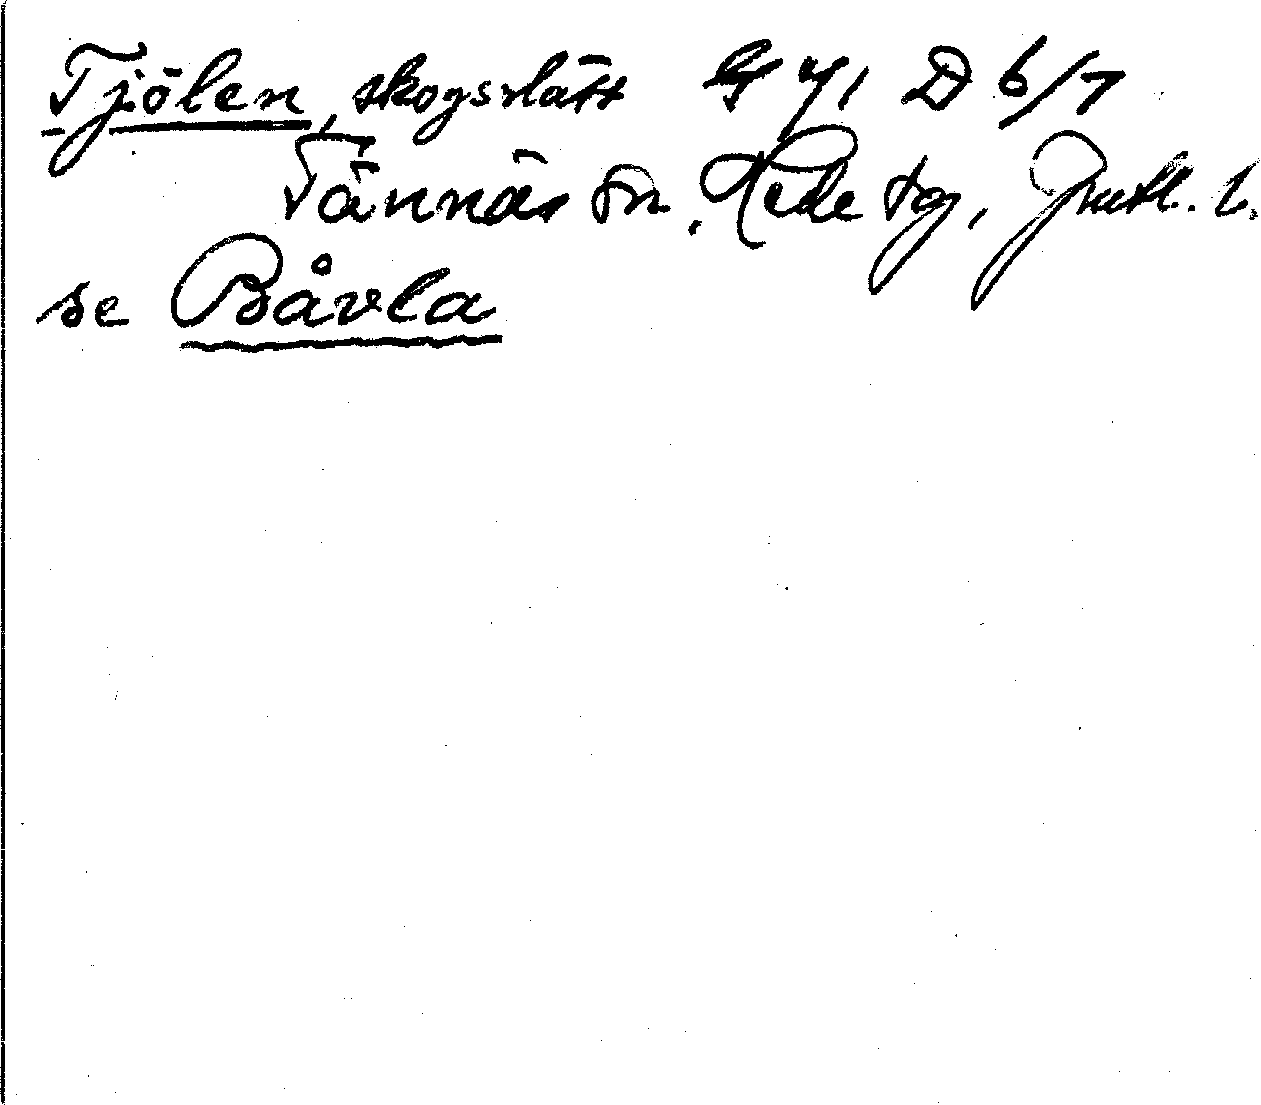 Tjölen, skogsslätt D 6/7
Tännäs sn, Hede tg, Jmtl. l.
se Båvla